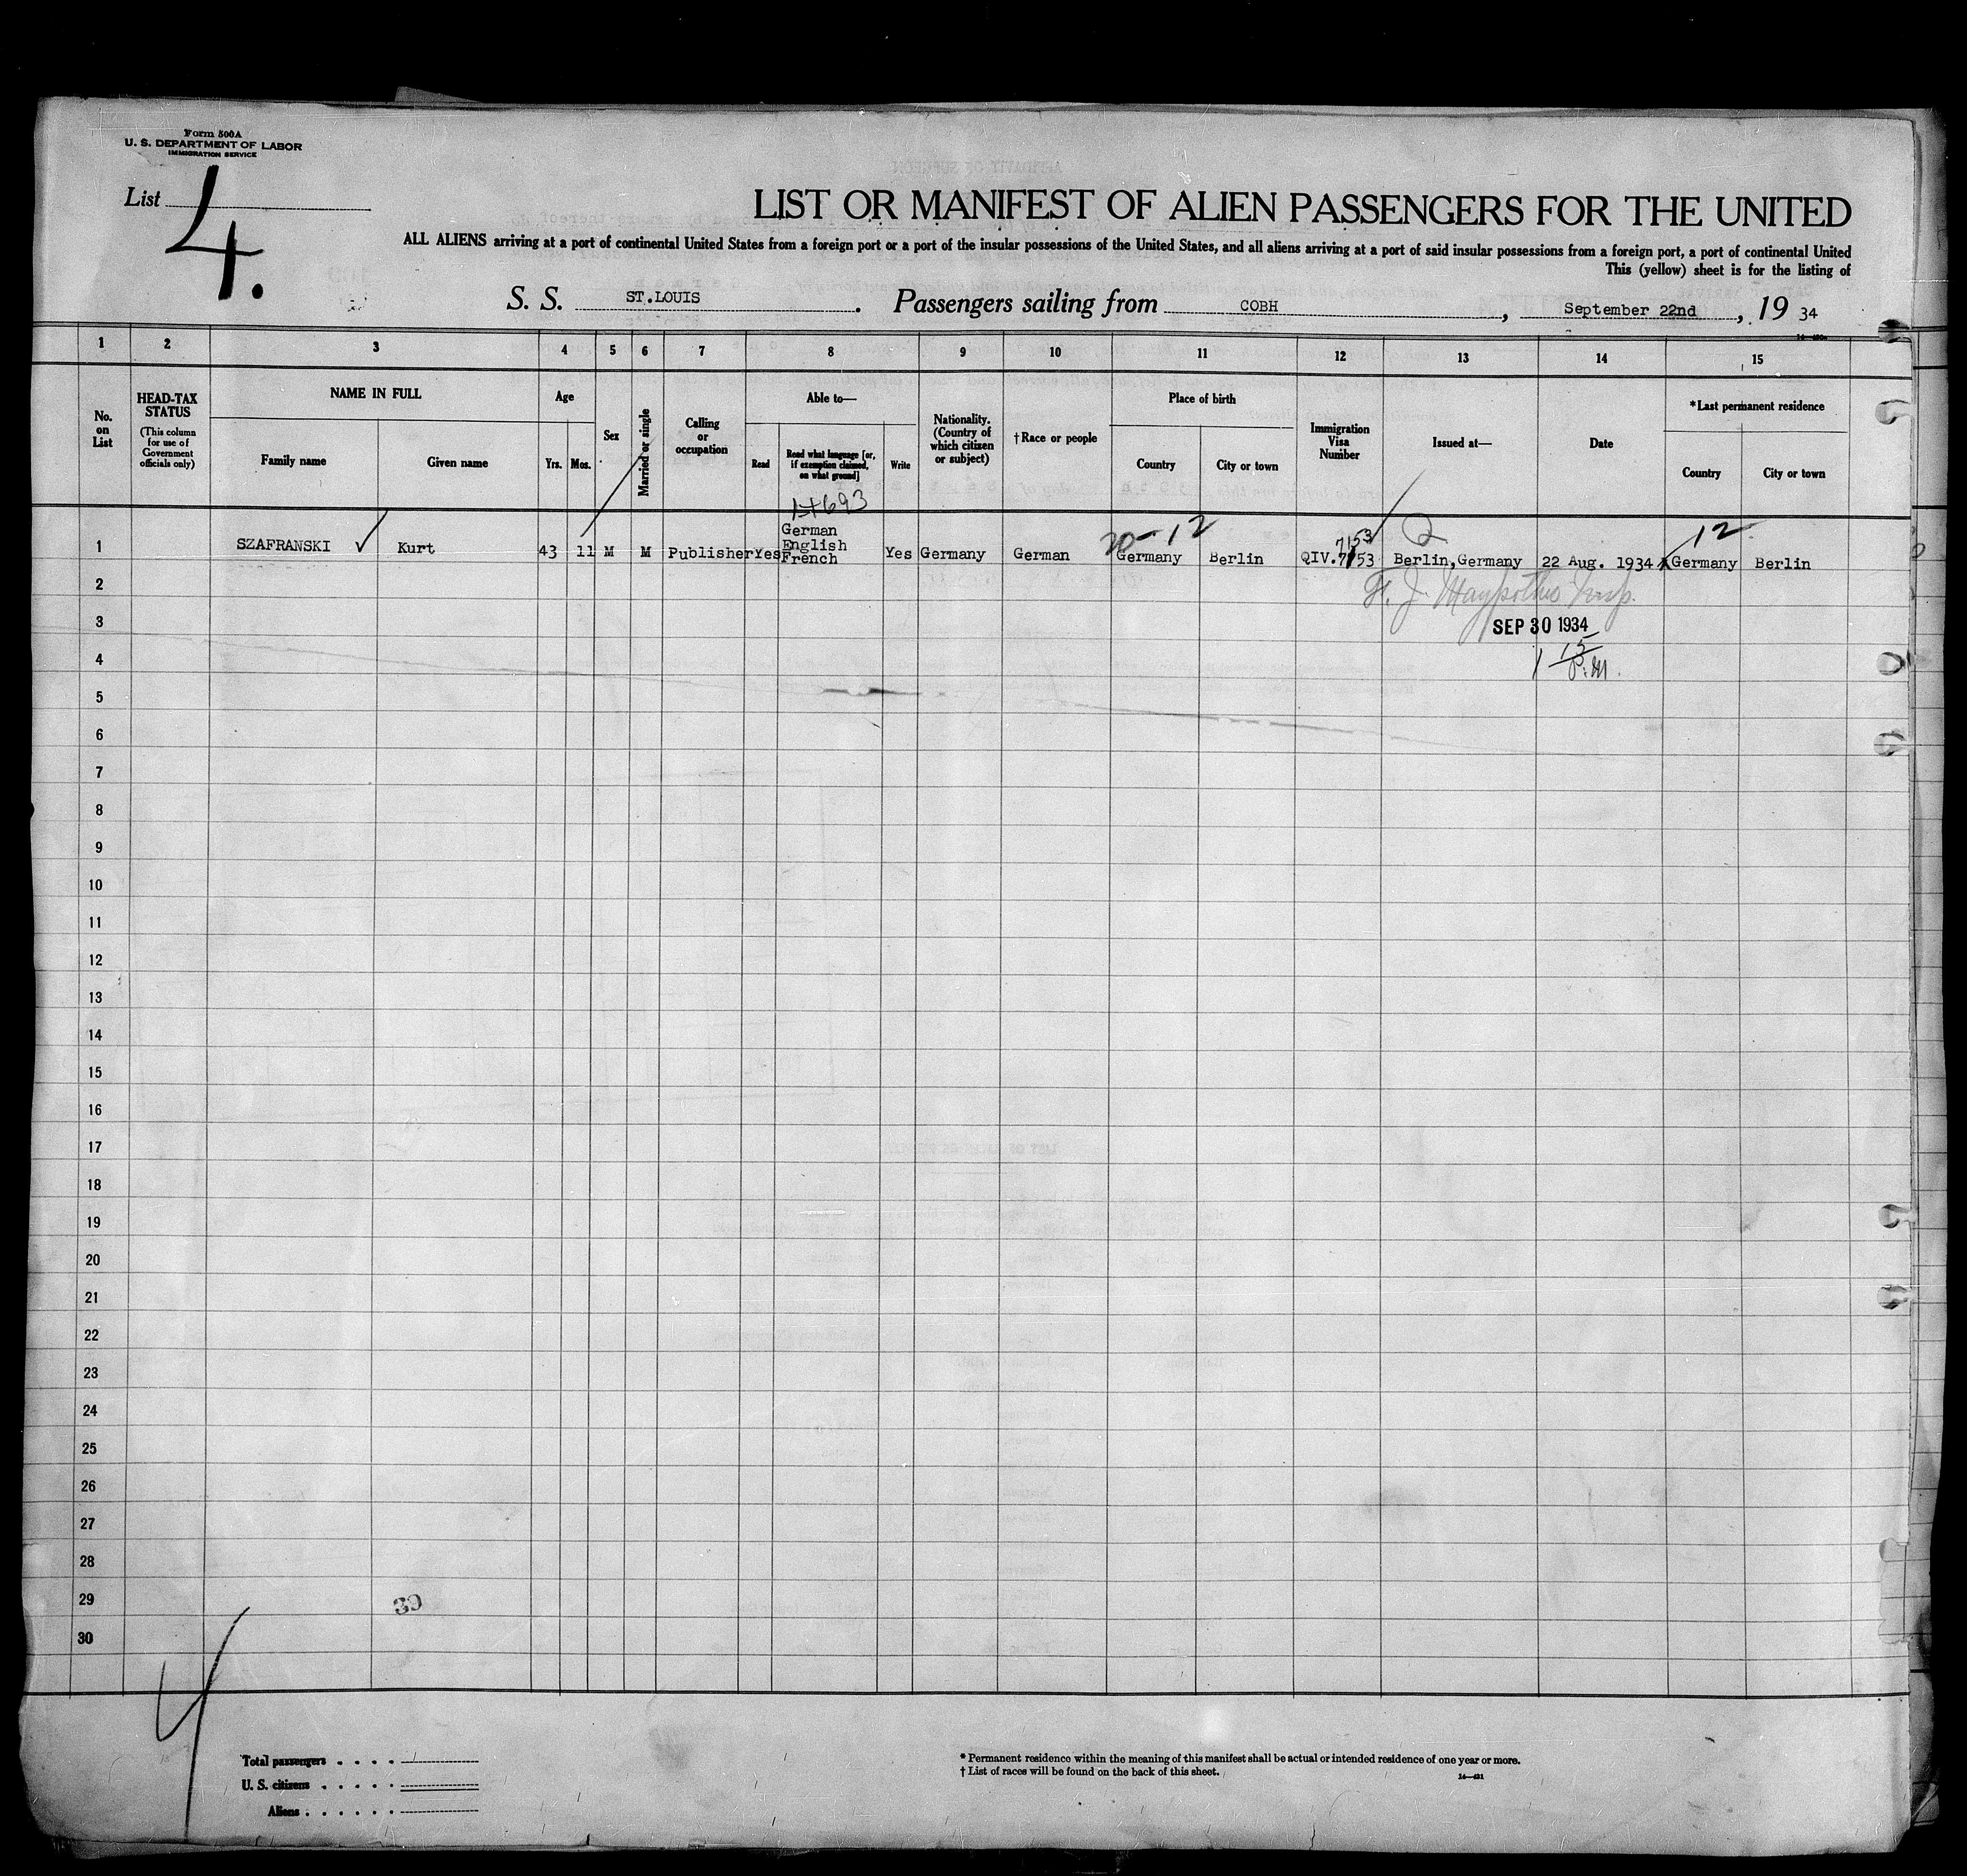 Form 500A
U. S. DEPARTMENT OF LABOR
IMMIGRATION SERVICE
List 4.
LIST OR MANIFEST OF ALIEN PASSENGERS FOR THE UNITED
ALL ALIENS arriving at a port of continental United States from a foreign port or a port of the insular possessions of the United States, and all aliens arriving at a port of said insular possessions from a foreign port, a port of continental United
This (yellow) sheet is for the listing of
S. S. ST.LOUIS. Passengers sailing from COBH, September 22nd, 19 34
1 2 3 4 5 6 7 8 9 10 11 12 13 14 15
No. on List
HEAD-TAX STATUS
(This column for use of Government officials only)
NAME IN FULL
Family name
Given name
Age
Yrs. Mos.
Sex
Married or single
Calling or occupation
Able to—
Read
Read what language [or, if exemption claimed, on what ground]
Write
Nationality. (Country of which citizen or subject)
†Race or people
Place of birth
Country
City or town
Immigration Visa Number
Issued at—
Date
*Last permanent residence
Country
City or town
693
20-12
7153
12
1 SZAFRANSKI ✓ Kurt 43 11 M M Publisher Yes German English French Yes Germany German Germany Berlin QIV.7153 Berlin,Germany 22 Aug. 1934 Germany Berlin
2
F. J. Insp.
3
SEP 30 1934
4
1 15 P.M.
5
6
7
8
9
10
11
12
13
14
15
16
17
18
19
20
21
22
23
24
25
26
27
28
29
30
30
4
Total passengers
U. S. citizens
Aliens
* Permanent residence within the meaning of this manifest shall be actual or intended residence of one year or more.
† List of races will be found on the back of this sheet.
14—431